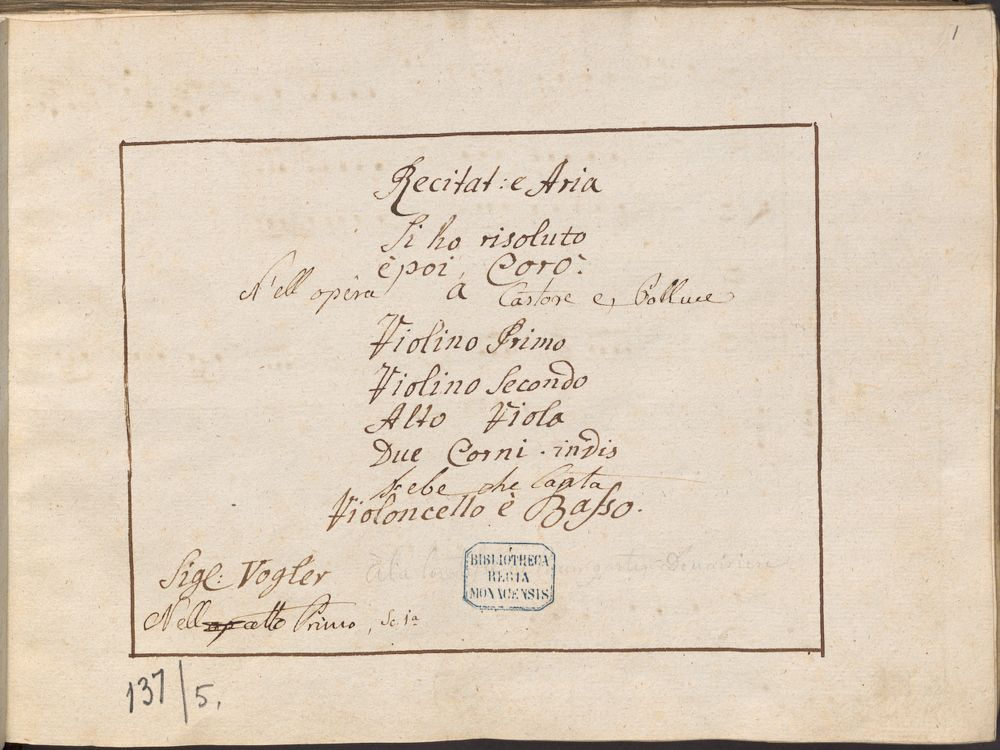 1
Recitat: e Aria
Si ho risoluto
è poi, Coro:
Nell opera a Castore e, Polluce
Violino Primo
Violino Secondo
Alto Viola
Due Corni. in dis
Hebe che Canta
Violoncello è Basso.
BIBLIOTHECA
REGIA
MONACENSIS
Sigl: Vogler
Nell atto Primo, Sc. 1a
137/5.